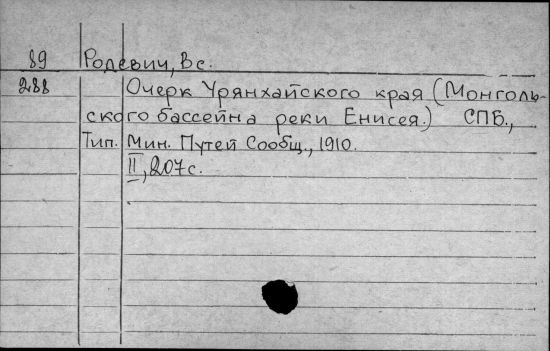 89 Родевич, Вс.
288 Очерк Урянхайского края (Монголь-
ского бассейна реки Енисея.) СПБ.,
Тип. Мин. Путей Сообщ., 1910.
II, 207 с.